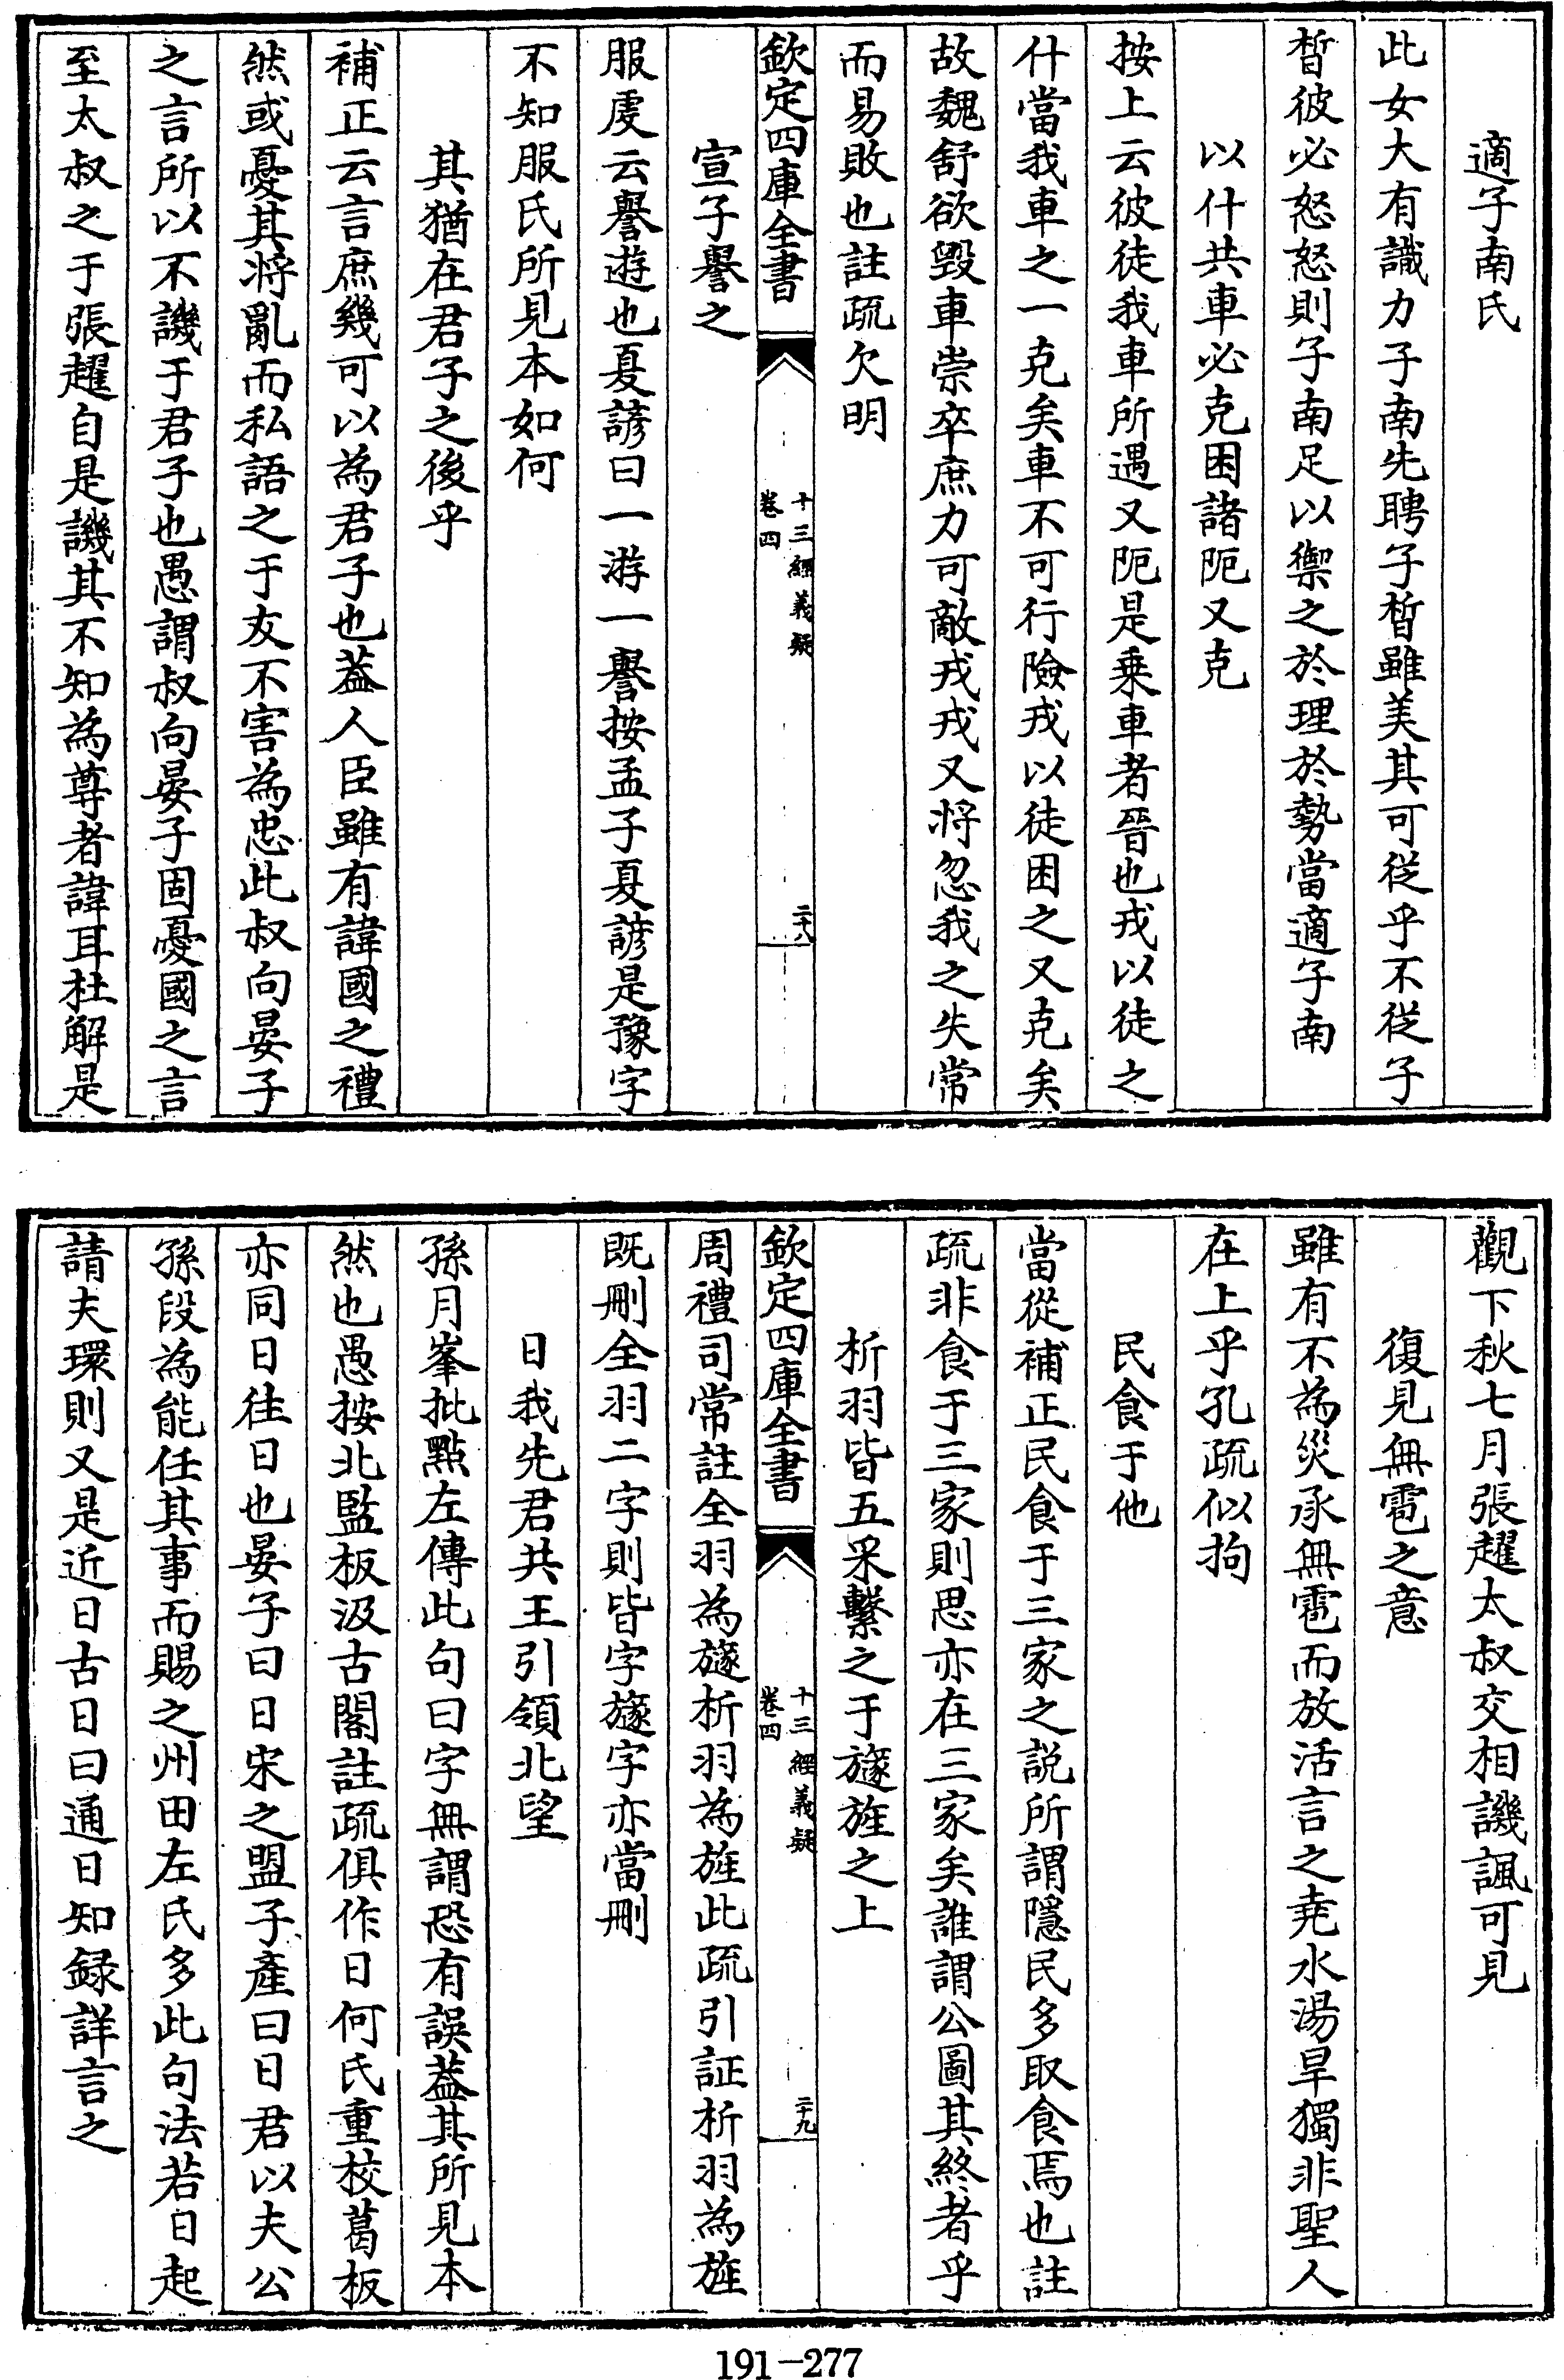 適子南氏
此女大有識力子南先聘子晳雖美其可從乎不從子
晳彼必怒怒則子南足以禦之於理於勢當適子南
以什共車必克困諸阨又克
按上云彼徒我車所遇又阨是乗車者晉也戎以徒之
什當我車之一克矣車不可行險戎以徒困之又克矣
故魏舒欲毁車崇卒庶力可敵戎戎又將忽我之失常
而易敗也註疏欠明
欽定四庫全書
十三經義疑
卷四
二十八
宣子譽之
服虔云譽遊也夏諺曰一游一譽按孟子夏諺是豫字
不知服氏所見本如何
其猶在君子之後乎
補正云言庶幾可以為君子也葢人臣雖有諱國之禮
然或憂其將亂而私語之于友不害為忠此叔向晏子
之言所以不譏于君子也愚謂叔向晏子固憂國之言
至太叔之于張趯自是譏其不知為尊者諱耳杜解是
觀下秋七月張趯太叔交相譏諷可見
復見無雹之意
雖有不為災承無雹而放活言之堯水湯旱獨非聖人
在上乎孔疏似拘
民食于他
當從補正民食于三家之說所謂隱民多取食焉也註
疏非食于三家則思亦在三家矣誰謂公圖其終者乎
析羽皆五采繫之于旞旌之上
欽定四庫全書
十三經義疑
卷四
二十九
周禮司常註全羽為旞析羽為旌此疏引証析羽為旌
既刪全羽二字則皆字旞字亦當刪
日我先君共王引領北望
孫月峯批點左傳此句曰字無謂恐有誤葢其所見本
然也愚按北監板汲古閣註疏俱作日何氏重校葛板
亦同日往日也晏子曰日宋之盟子產曰日君以夫公
孫段為能任其事而賜之州田左氏多此句法若日起
請夫環則又是近日古日曰通日知録詳言之
191-277